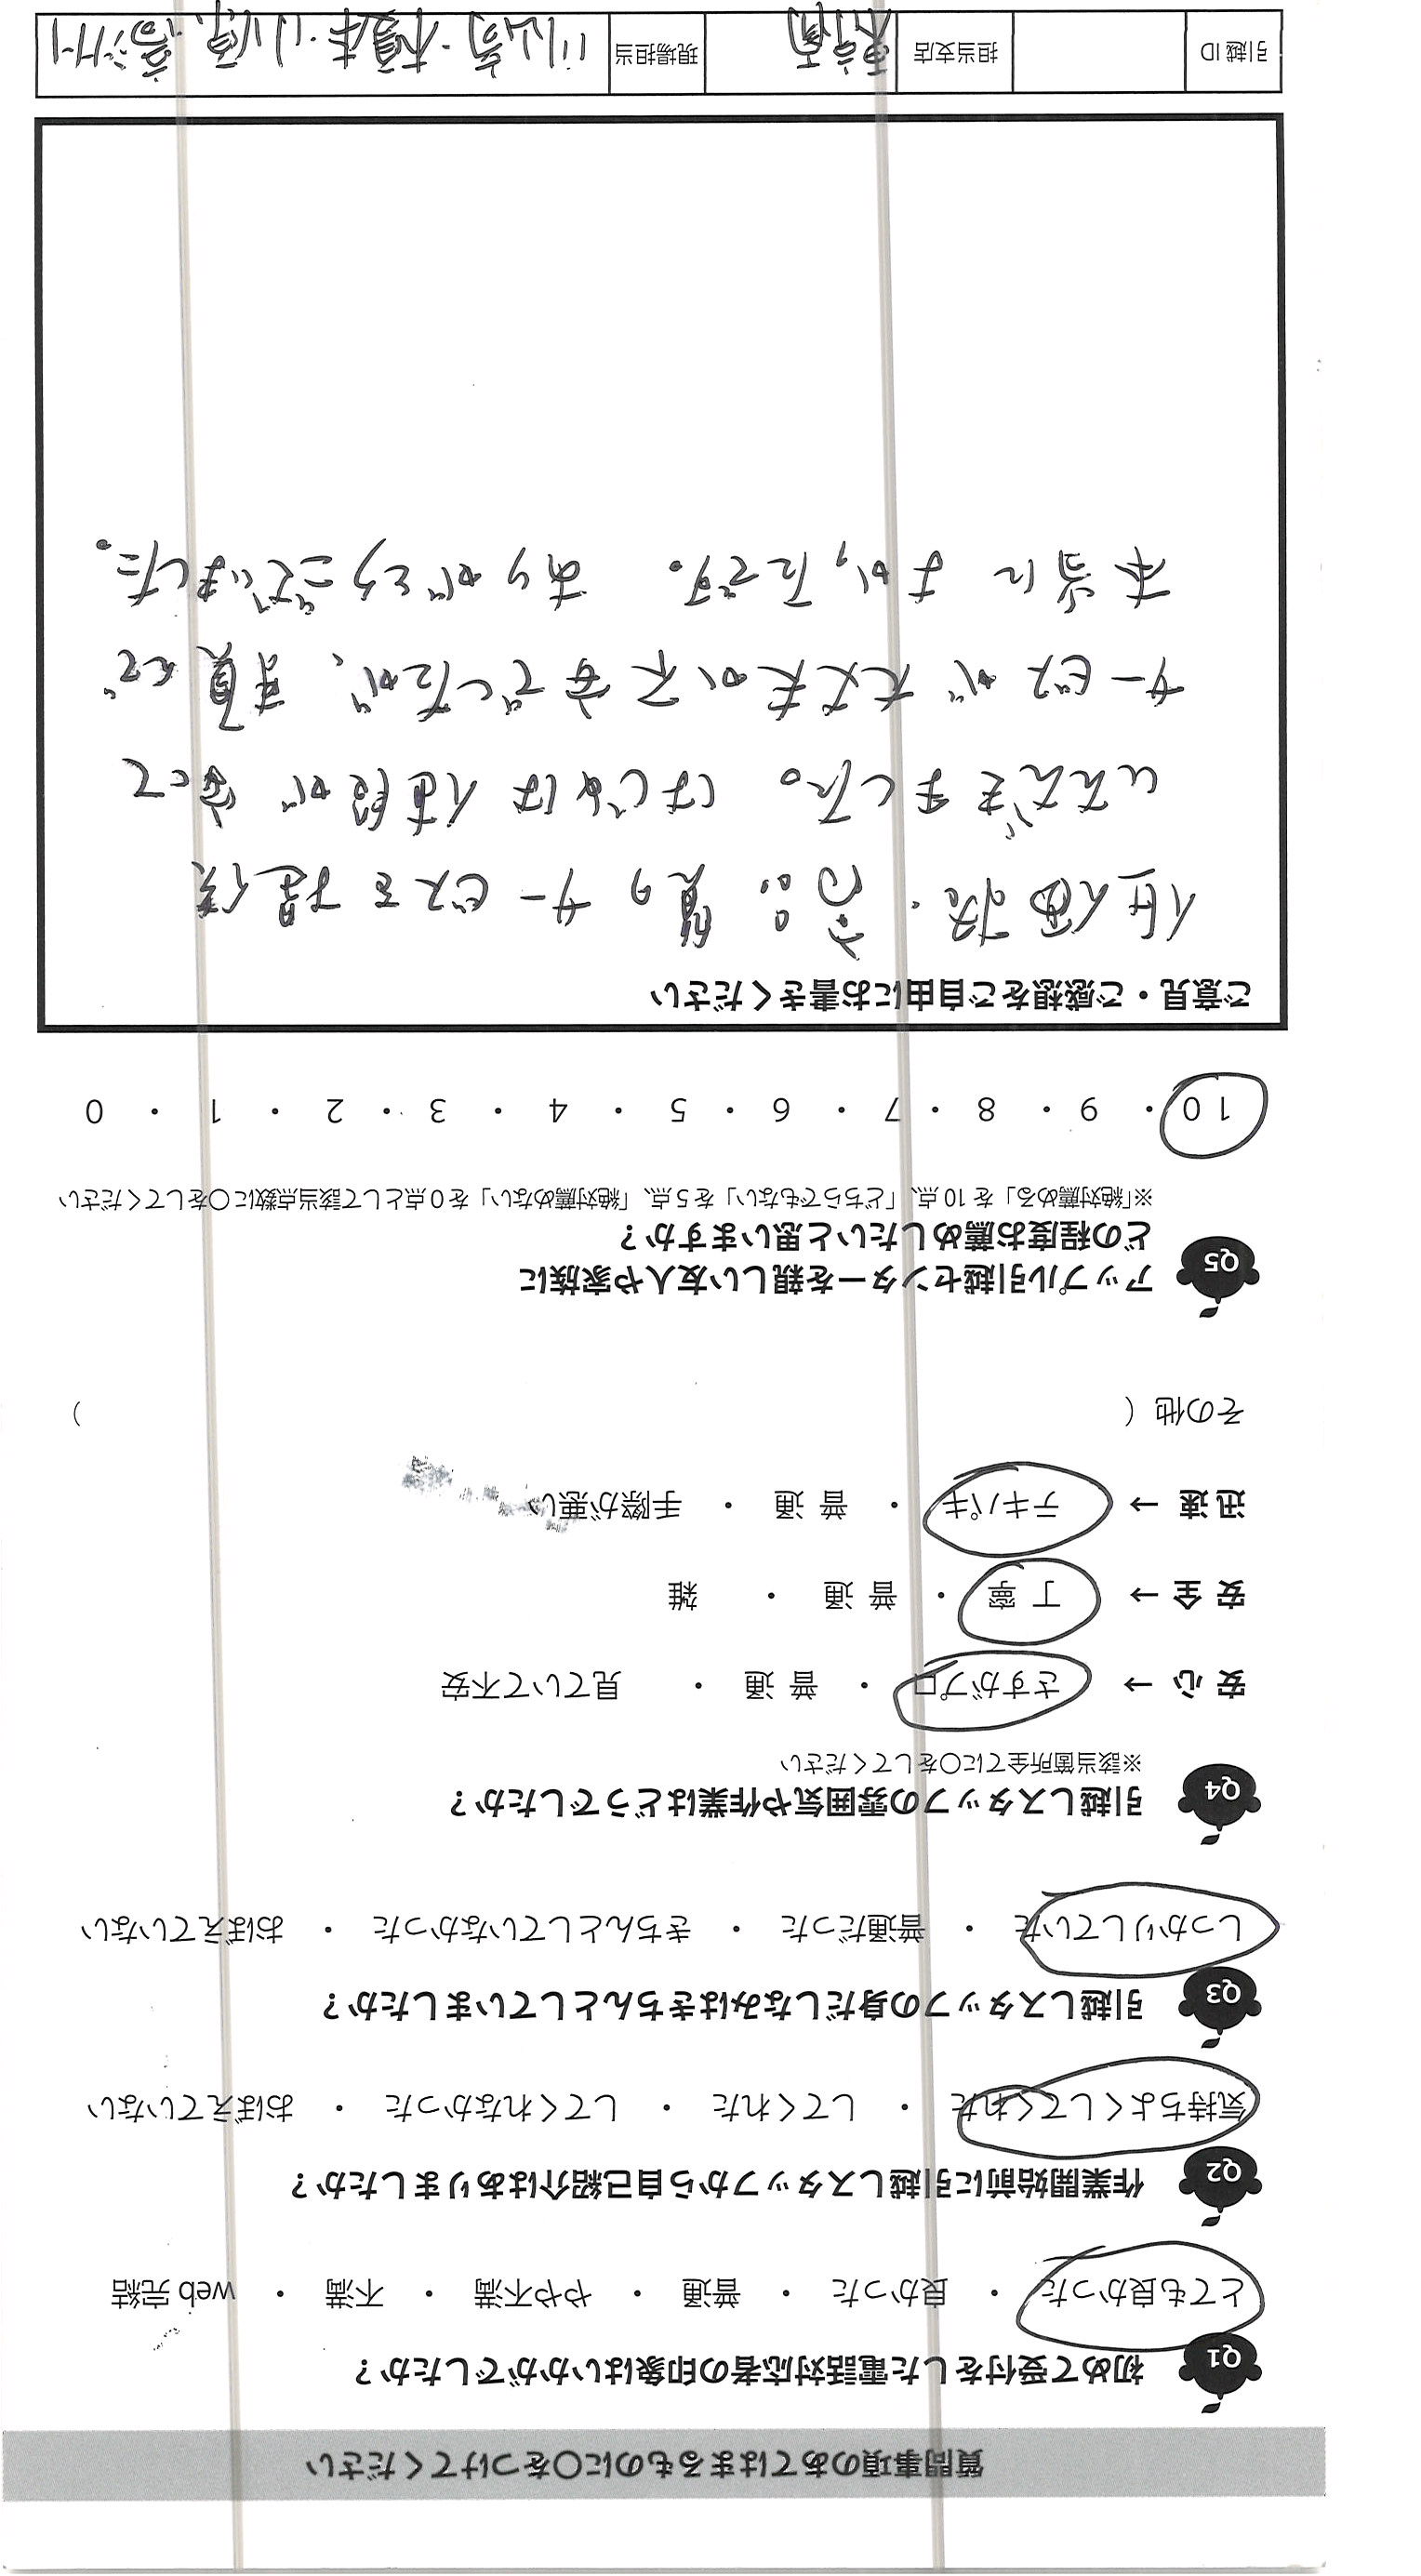 質問事項のあてはまるものに○をつけてください
Q1 初めて受付をした電話対応者の印象はいかがでしたか？
とても良かった ・ 良かった ・ 普通 ・ やや不満 ・ 不満 ・ web 完結
Q2 作業開始前に引越しスタッフから自己紹介はありましたか？
気持ちよくしてくれた ・ してくれた ・ してくれなかった ・ おぼえていない
Q3 引越しスタッフの身だしなみはきちんとしていましたか？
しっかりしていた ・ 普通だった ・ きちんとしていなかった ・ おぼえていない
Q4 引越しスタッフの雰囲気や作業はどうでしたか？
※該当箇所全てに○をしてください
安 心 → さすがプロ ・ 普 通 ・ 見ていて不安
安 全 → 丁 寧 ・ 普 通 ・ 雑
迅 速 → テキパキ ・ 普 通 ・ 手際が悪い
その他（ ）
Q5 アップル引越センターを親しい友人や家族に
どの程度お薦めしたいと思いますか？
※「絶対薦める」を 10 点、「どちらでもない」を 5 点、「絶対薦めない」を 0 点として該当点数に○をしてください
10 ・ 9 ・ 8 ・ 7 ・ 6 ・ 5 ・ 4 ・ 3 ・ 2 ・ 1 ・ 0
ご意見・ご感想をご自由にお書きください
低価格・高品質のサービスを提供
いただきました。 はじめは値段が安くて
サービスが大丈夫か不安でしたが、頼んで
本当によかったです。 ありがとうございました。
引越 ID 担当支店 現場担当